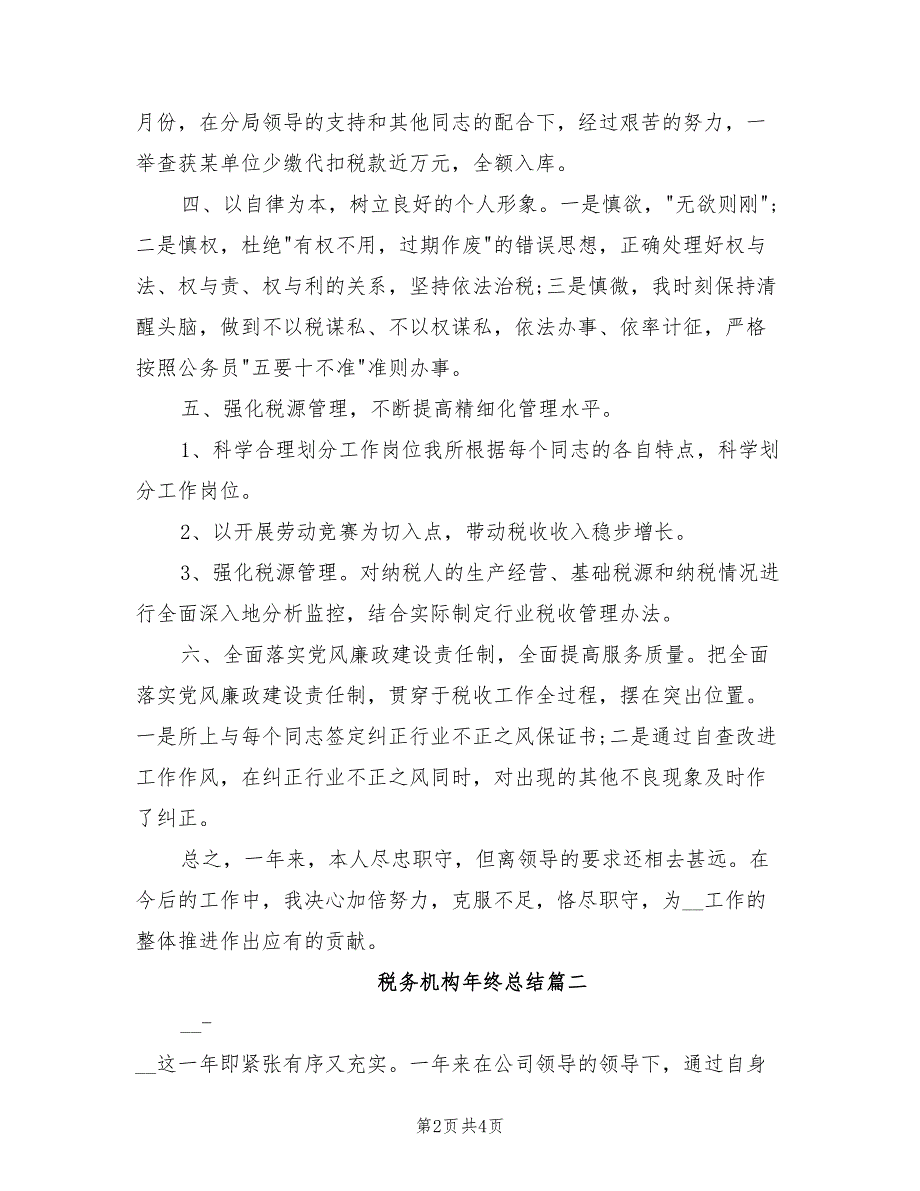 月份，在分局领导的支持和其他同志的配合下，经过艰苦的努力，一
举查获某单位少缴代扣税款近万元，全额入库。
四、以自律为本，树立良好的个人形象。一是慎欲，"无欲则刚";
二是慎权，杜绝"有权不用，过期作废"的错误思想，正确处理好权与
法、权与责、权与利的关系，坚持依法治税;三是慎微，我时刻保持清
醒头脑，做到不以税谋私、不以权谋私，依法办事、依率计征，严格
按照公务员"五要十不准"准则办事。
五、强化税源管理，不断提高精细化管理水平。
1、科学合理划分工作岗位我所根据每个同志的各自特点，科学划
分工作岗位。
2、以开展劳动竞赛为切入点，带动税收收入稳步增长。
3、强化税源管理。对纳税人的生产经营、基础税源和纳税情况进
行全面深入地分析监控，结合实际制定行业税收管理办法。
六、全面落实党风廉政建设责任制，全面提高服务质量。把全面
落实党风廉政建设责任制，贯穿于税收工作全过程，摆在突出位置。
一是所上与每个同志签定纠正行业不正之风保证书;二是通过自查改进
工作作风，在纠正行业不正之风同时，对出现的其他不良现象及时作
了纠正。
总之，一年来，本人尽忠职守，但离领导的要求还相去甚远。在
今后的工作中，我决心加倍努力，克服不足，恪尽职守，为__工作的
整体推进作出应有的贡献。
税务机构年终总结篇二
__-
__这一年即紧张有序又充实。一年来在公司领导的领导下，通过自身
第2页共4页